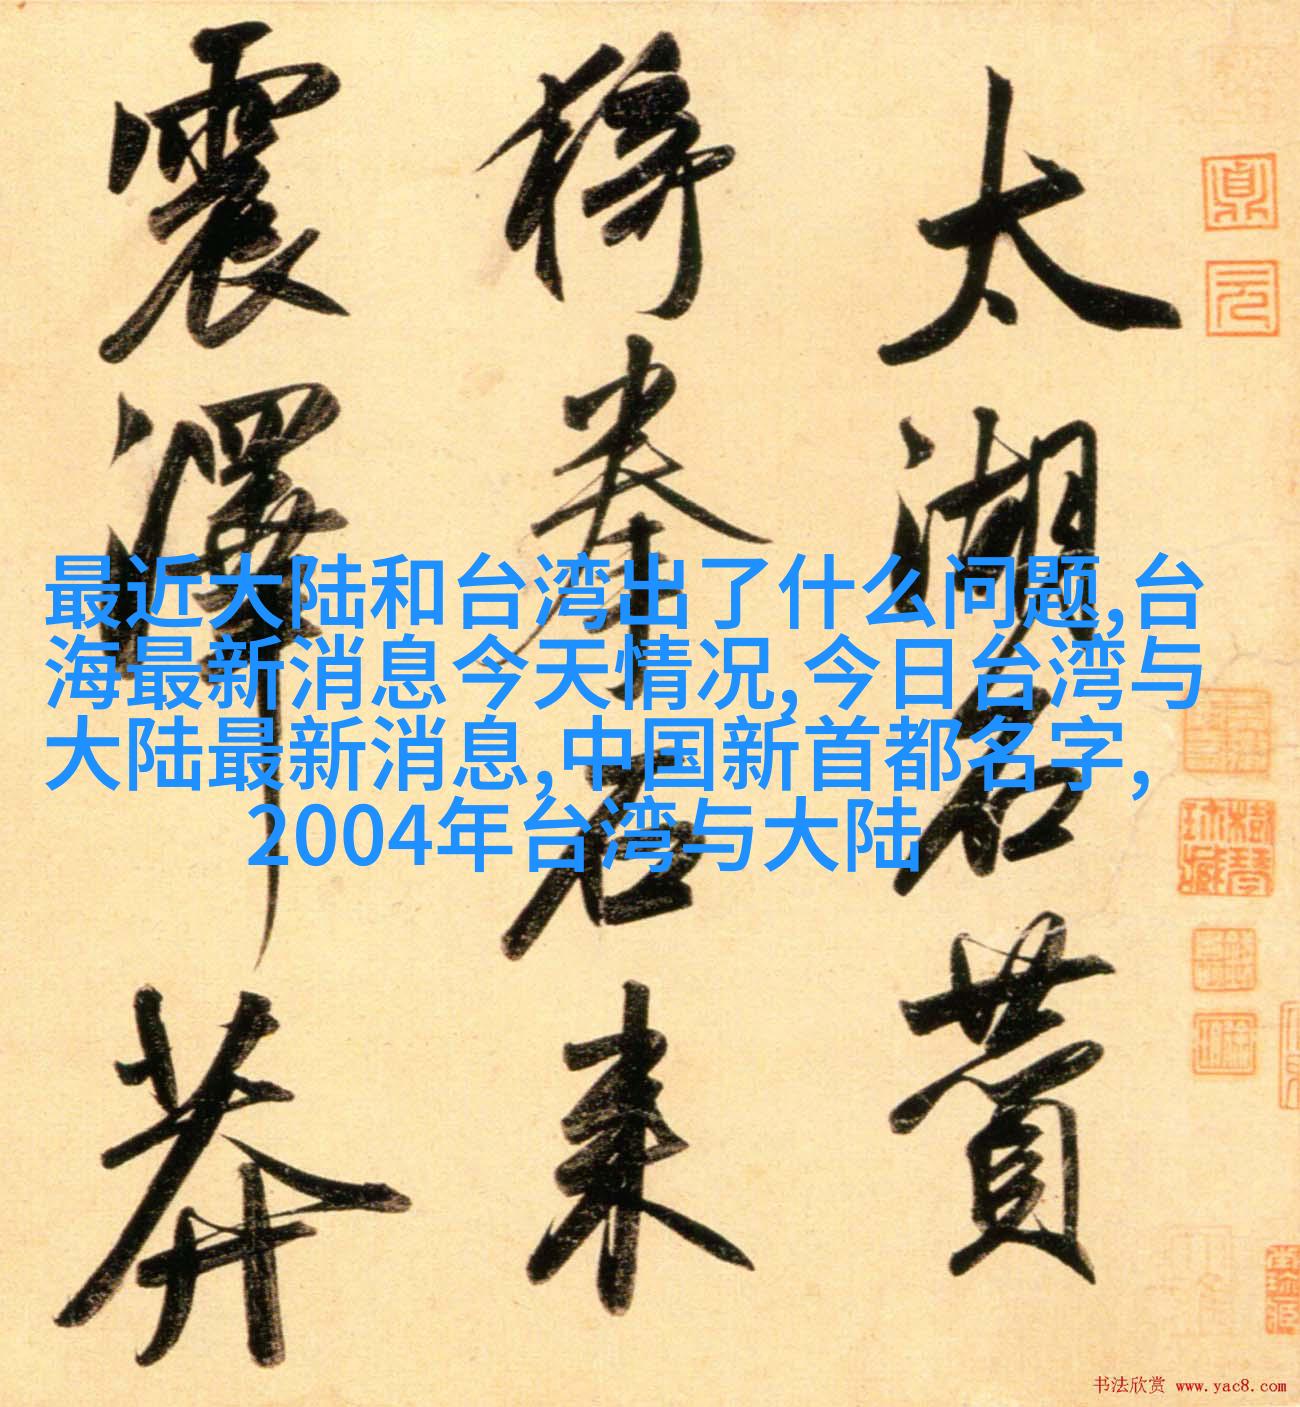 太湖石賛
猗拳石来
震澤莽
最近大陆和台湾出了什么问题,台
海最新消息今天情况,今日台湾与
大陆最新消息,中国新首都名字,
2004年台湾与大陆
书法欣赏 www.yac8.com